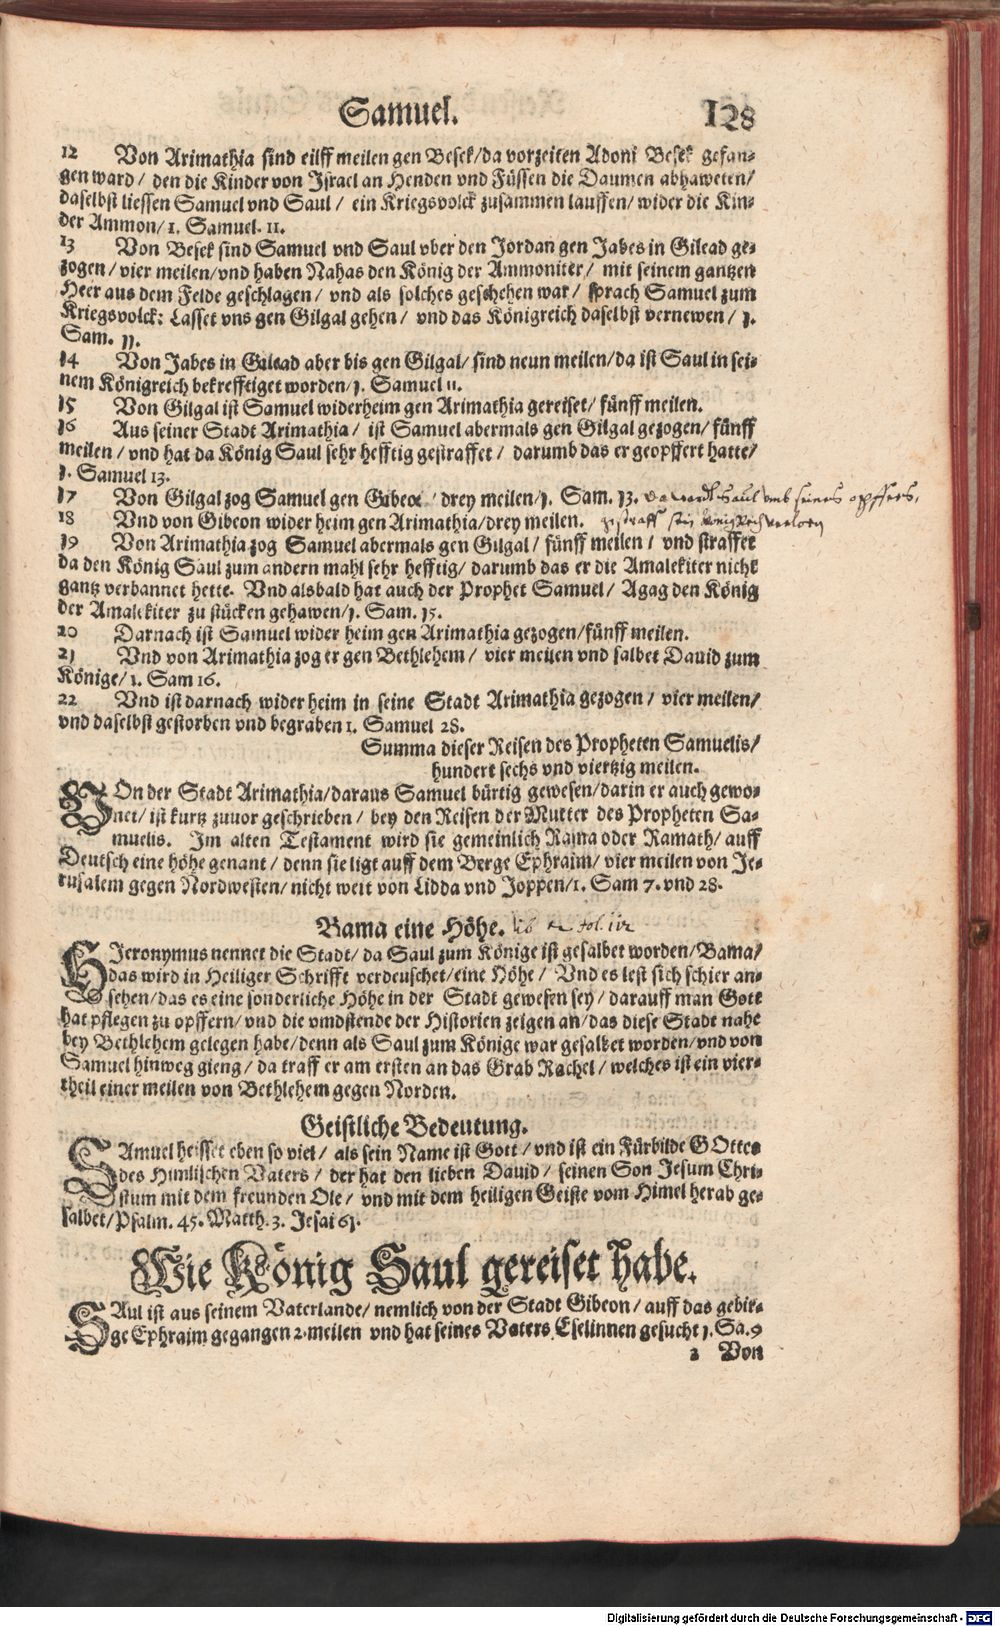 Samuel. 128
12 Von Arimathia sind eilff meilen gen Besek/da vorzeiten Adoni Besek gefan-
gen ward/ den die Kinder von Israel an Henden vnd Füssen die Daumen abhaweten/
daselbst liessen Samuel vnd Saul/ ein Kriegsvolck zusammen lauffen/ wider die Kin-
der Ammon/1. Samuel. 11.
13 Von Besek sind Samuel vnd Saul vber den Jordan gen Jabes in Gilead ge-
zogen/ vier meilen/vnd haben Nahas den König der Ammoniter/ mit seinem gantzen
Heer aus dem Felde geschlagen/ vnd als solches geschehen war/ sprach Samuel zum
Kriegsvolck: Lasset vns gen Gilgal gehen/ vnd das Königreich daselbst vernewen/ 1.
Sam. 11.
14 Von Jabes in Gilead aber bis gen Gilgal/ sind neun meilen/da ist Saul in sei-
nem Königreich bekrefftiget worden/1. Samuel 11.
15 Von Gilgal ist Samuel widerheim gen Arimathia gereiset/ fünff meilen.
16 Aus seiner Stadt Arimathia/ ist Samuel abermals gen Gilgal gezogen/ fünff
meilen/ vnd hat da König Saul sehr hefftig gestraffet/ darumb das er geopffert hatte/
1. Samuel 13.
17 Von Gilgal zog Samuel gen Gibeon/ drey meilen/1. Sam. 13. da ward Saul umb seines opffers,
18 Vnd von Gibeon wider heim gen Arimathia/drey meilen. gestrafft sein Königreich verloren
19 Von Arimathia zog Samuel abermals gen Gilgal/ fünff meilen/ vnd straffet
da den König Saul zum andern mahl sehr hefftig/ darumb das er die Amalekiter nicht
gantz verbannet hette. Vnd alsbald hat auch der Prophet Samuel/ Agag den König
der Amalekiter zu stücken gehawen/1. Sam. 15.
20 Darnach ist Samuel wider heim gen Arimathia gezogen/fünff meilen.
21 Vnd von Arimathia zog er gen Bethlehem/ vier meilen vnd salbet Dauid zum
Könige/1. Sam 16.
22 Vnd ist darnach wider heim in seine Stadt Arimathia gezogen/ vier meilen/
vnd daselbst gestorben vnd begraben 1. Samuel 28.
Summa dieser Reisen des Propheten Samuelis/
hundert sechs vnd viertzig meilen.
VOn der Stadt Arimathia/daraus Samuel bürtig gewesen/darin er auch gewo-
net/ ist kurtz zuuor geschrieben/ bey den Reisen der Mutter des Propheten Sa-
muelis. Im alten Testament wird sie gemeinlich Rama oder Ramath/ auff
Deutsch eine höhe genant/ denn sie ligt auff dem Berge Ephraim/ vier meilen von Je-
rusalem gegen Nordwesten/ nicht weit von Lidda vnd Joppen/1. Sam 7. vnd 28.
Bama eine Höhe. fol. 112
HJeronymus nennet die Stadt/ da Saul zum Könige ist gesalbet worden/Bama/
das wird in Heiliger Schrifft verdeuschet/eine Höhe/ Vnd es lest sich schier an-
sehen/das es eine sonderliche Höhe in der Stadt gewesen sey/ darauff man Gott
hat pflegen zu opffern/ vnd die vmdstende der Historien zeigen an/das diese Stadt nahe
bey Bethlehem gelegen habe/denn als Saul zum Könige war gesalbet worden/vnd von
Samuel hinweg gieng/ da traff er am ersten an das Grab Rachel/ welches ist ein vier-
theil einer meilen von Bethlehem gegen Norden.
Geistliche Bedeutung.
SAmuel heisset eben so viel/ als sein Name ist Gott/ vnd ist ein Fürbilde GOttes
des Himlischen Vaters/ der hat den lieben Dauid/ seinen Son Jesum Chri-
stum mit dem freunden Ole/ vnd mit dem heiligen Geiste vom Himel herab ge-
salbet/Psalm. 45. Matth. 3. Jesai 61.
Wie König Saul gereiset habe.
SAul ist aus seinem Vaterlande/ nemlich von der Stadt Gibeon/ auff das gebir-
ge Ephraim gegangen 2. meilen vnd hat seines Vaters Eselinnen gesucht 1. Sa. 9
2 Von
Digitalisierung gefördert durch die Deutsche Forschungsgemeinschaft - DFG